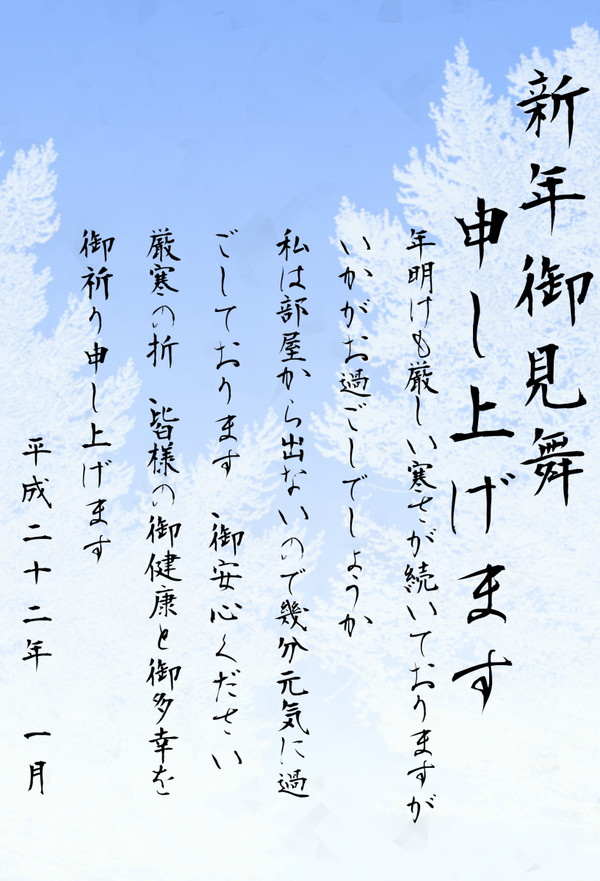 新年御見舞
申し上げます
年明けも厳しい寒さが続いておりますが
いかがお過ごしでしょうか
私は部屋から出ないので幾分元気に過
ごしております　御安心ください
厳寒の折　皆様の御健康と御多幸を
御祈り申し上げます
平成二十二年　一月